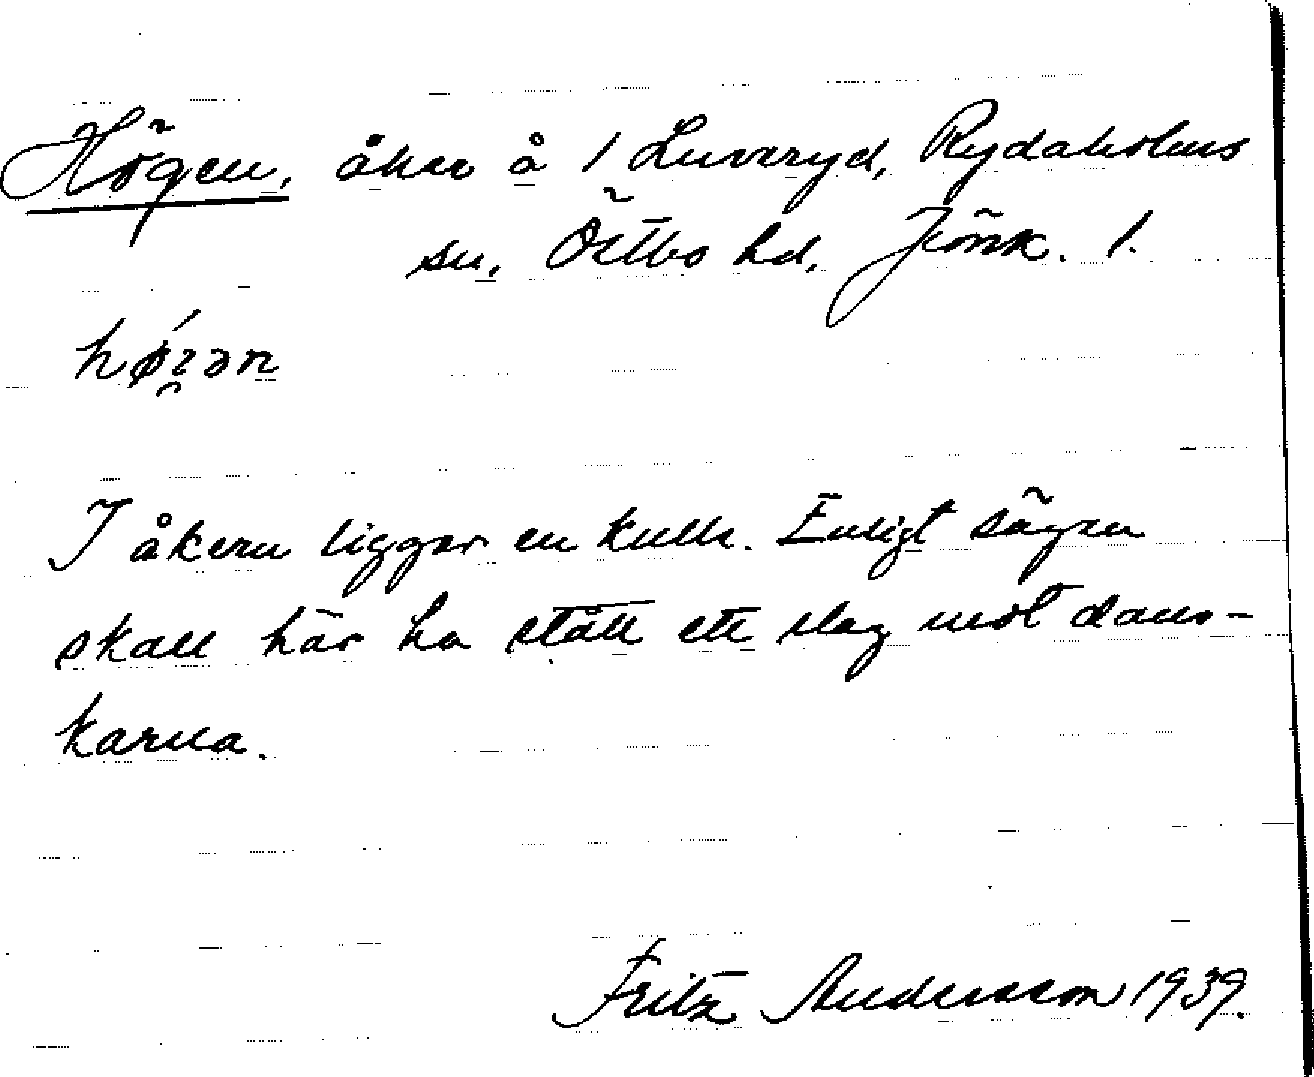 Högen, åker å 1 Luvvryd, Rydaholms
sn, Östbo hd, Jönk. l.
I åkern liggar en kulle. Enligt sägen
skall här ha stått ett slag mot dans-
karna.
Fritz Andersson 1939.